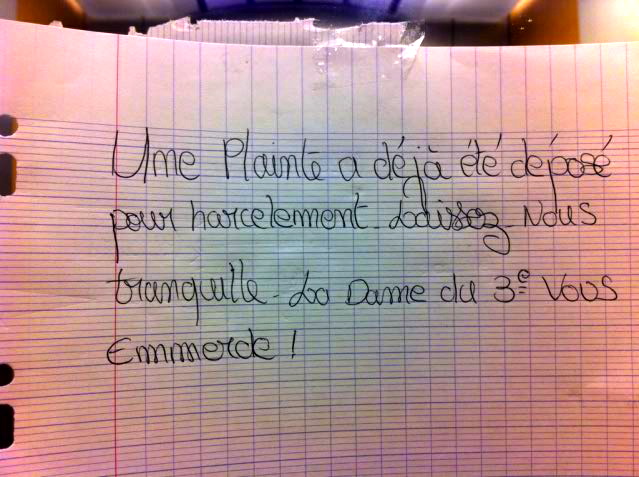 Une Plainte a déjà été déposé
pour harcelement. Laissez-Nous
tranquille. La Dame du 3e Vous
Emmerde !